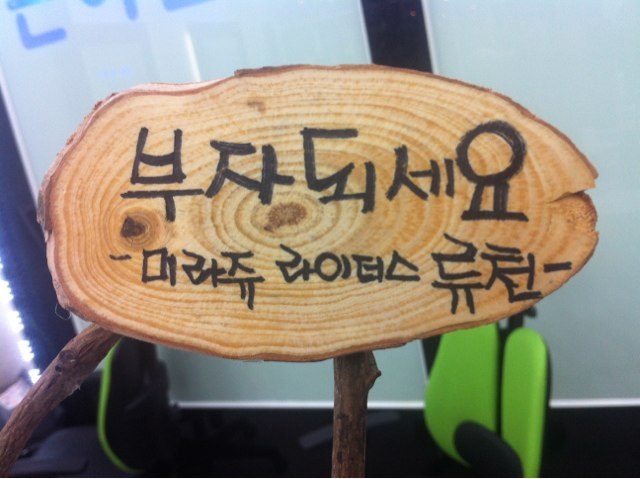 부자되세요
- 미라쥬 라이더스 류천 -